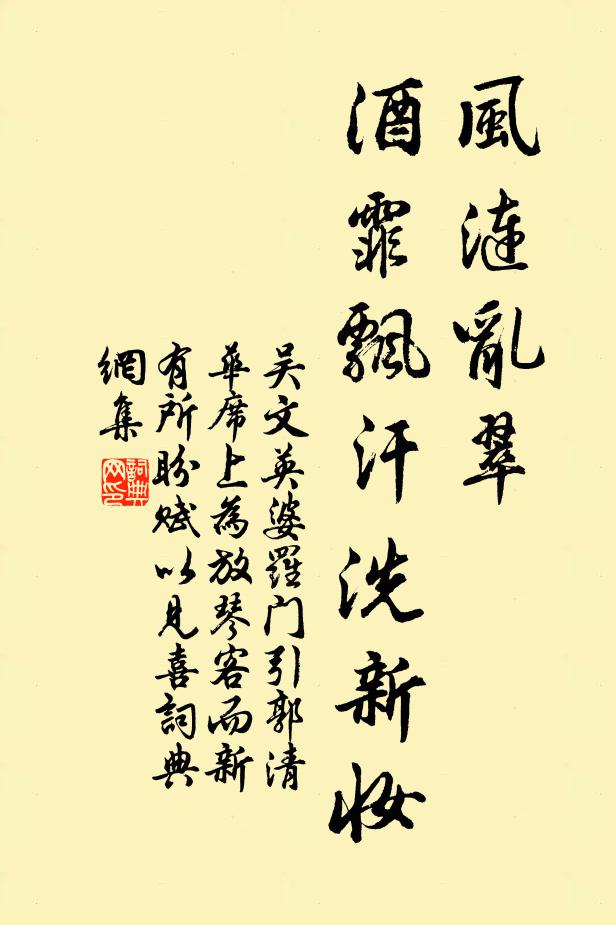 風漣亂翠
酒霏飄汗洗新妝
吴文英婆羅門引郭清
華席上為放琴客而新
有所盼賦以見喜詞典
網集
詞典
网印